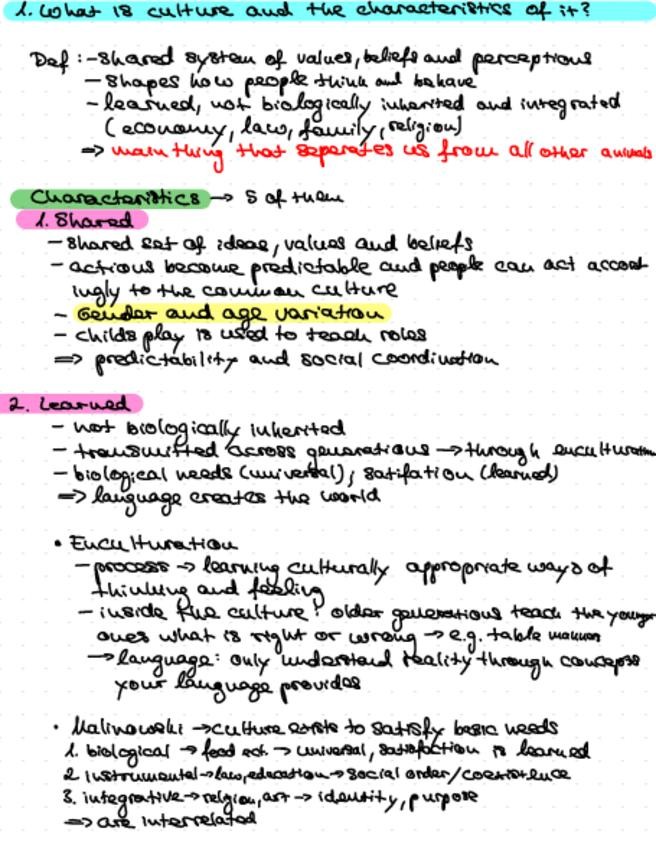 1. What is culture and the characteristics of it?
Def : - shared system of values, beliefs and perceptions
- shapes how people think and behave
- learned, not biologically inherited and integrated
(economy, law, family, religion)
=> main thing that seperates us from all other animals
Characteristics -> 5 of them
1. Shared
- shared set of ideas, values and beliefs
- actions become predictable and people can act accord
ingly to the common culture
- Gender and age variation
- childs play is used to teach roles
=> predictability and social coordination
2. Learned
- not biologically inherited
- transmitted across generations -> through enculturation
- biological needs (universal), satifation (learned)
=> language creates the world
• Enculturation
- process -> learning culturally appropriate ways of
thinking and feeling
- inside the culture: older generations teach the younger
ones what is right or wrong -> e.g. table manners
-> language: only understand reality through concepts
your language provides
• Malinowski -> culture exists to satisfy basic needs
1. biological -> food ect. -> universal, satisfaction is learned
2. instrumental -> law, education -> social order/coexistence
3. integrative -> religion, art -> identity, purpose
=> are interrelated